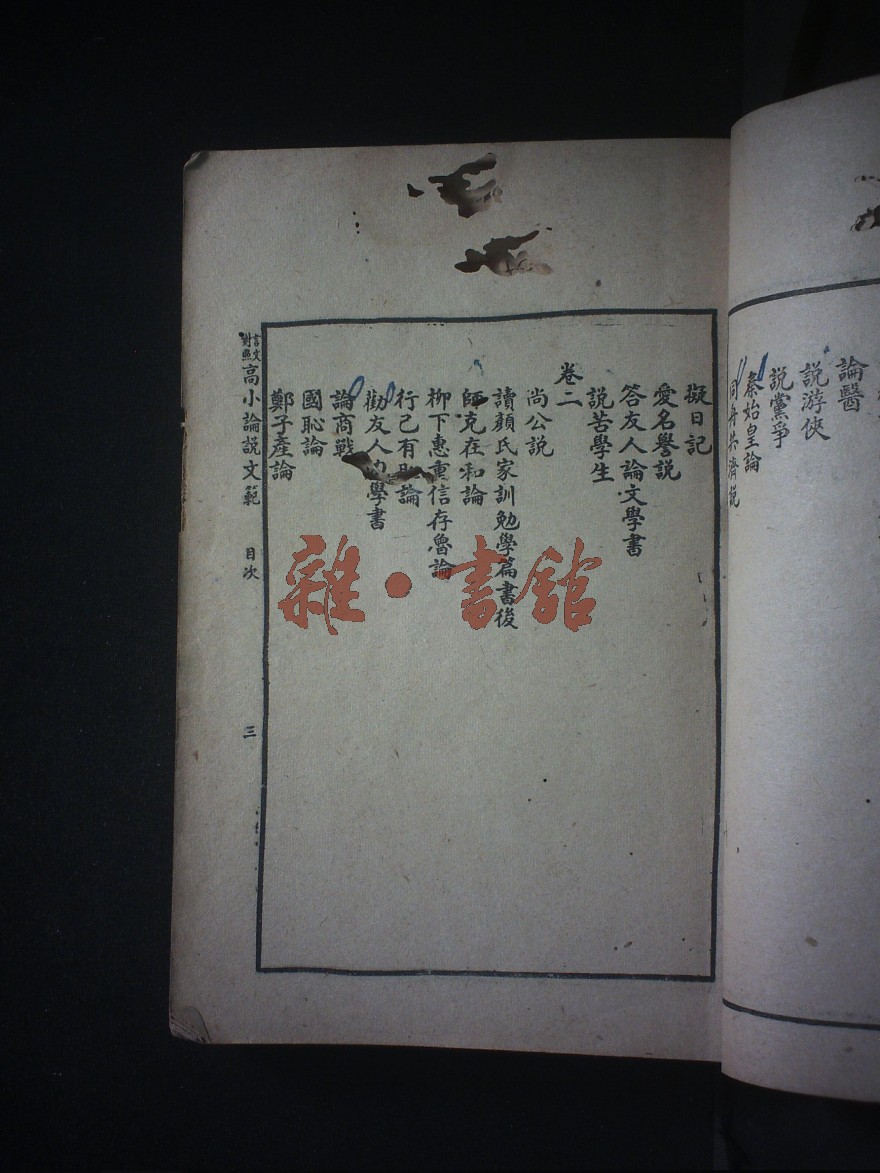 論醫
説游俠
説黨爭
秦始皇論
同舟共濟説
擬日記
愛名譽説
答友人論文學書
説苦學生
卷二
尚公説
讀顏氏家訓勉學篇書後
師克在和論
柳下惠重信存魯論
行己有恥論
勸友人 學書
論商戰
國恥論
鄭子產論
言文對照高小論説文範 目次 三
雜·書館